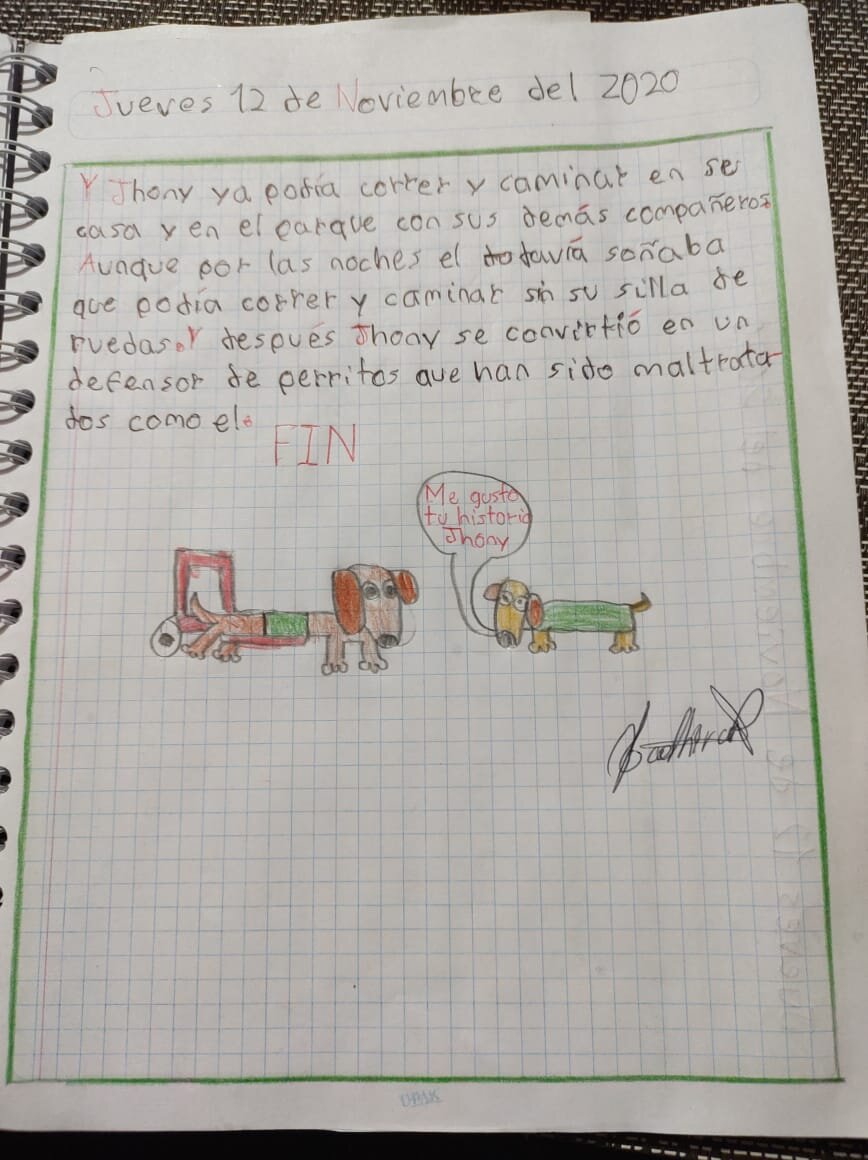 Jueves 12 de Noviembre del 2020
Y Jhony ya podía correr y caminar en se
casa y en el parque con sus demás compañeros
Aunque por las noches el todavía soñaba
que podía correr y caminar sin su silla de
ruedas. Y después Jhony se convirtió en un
defensor de perritos que han sido maltrata-
dos como el.
FIN
Me gusto
tu historia
Jhony